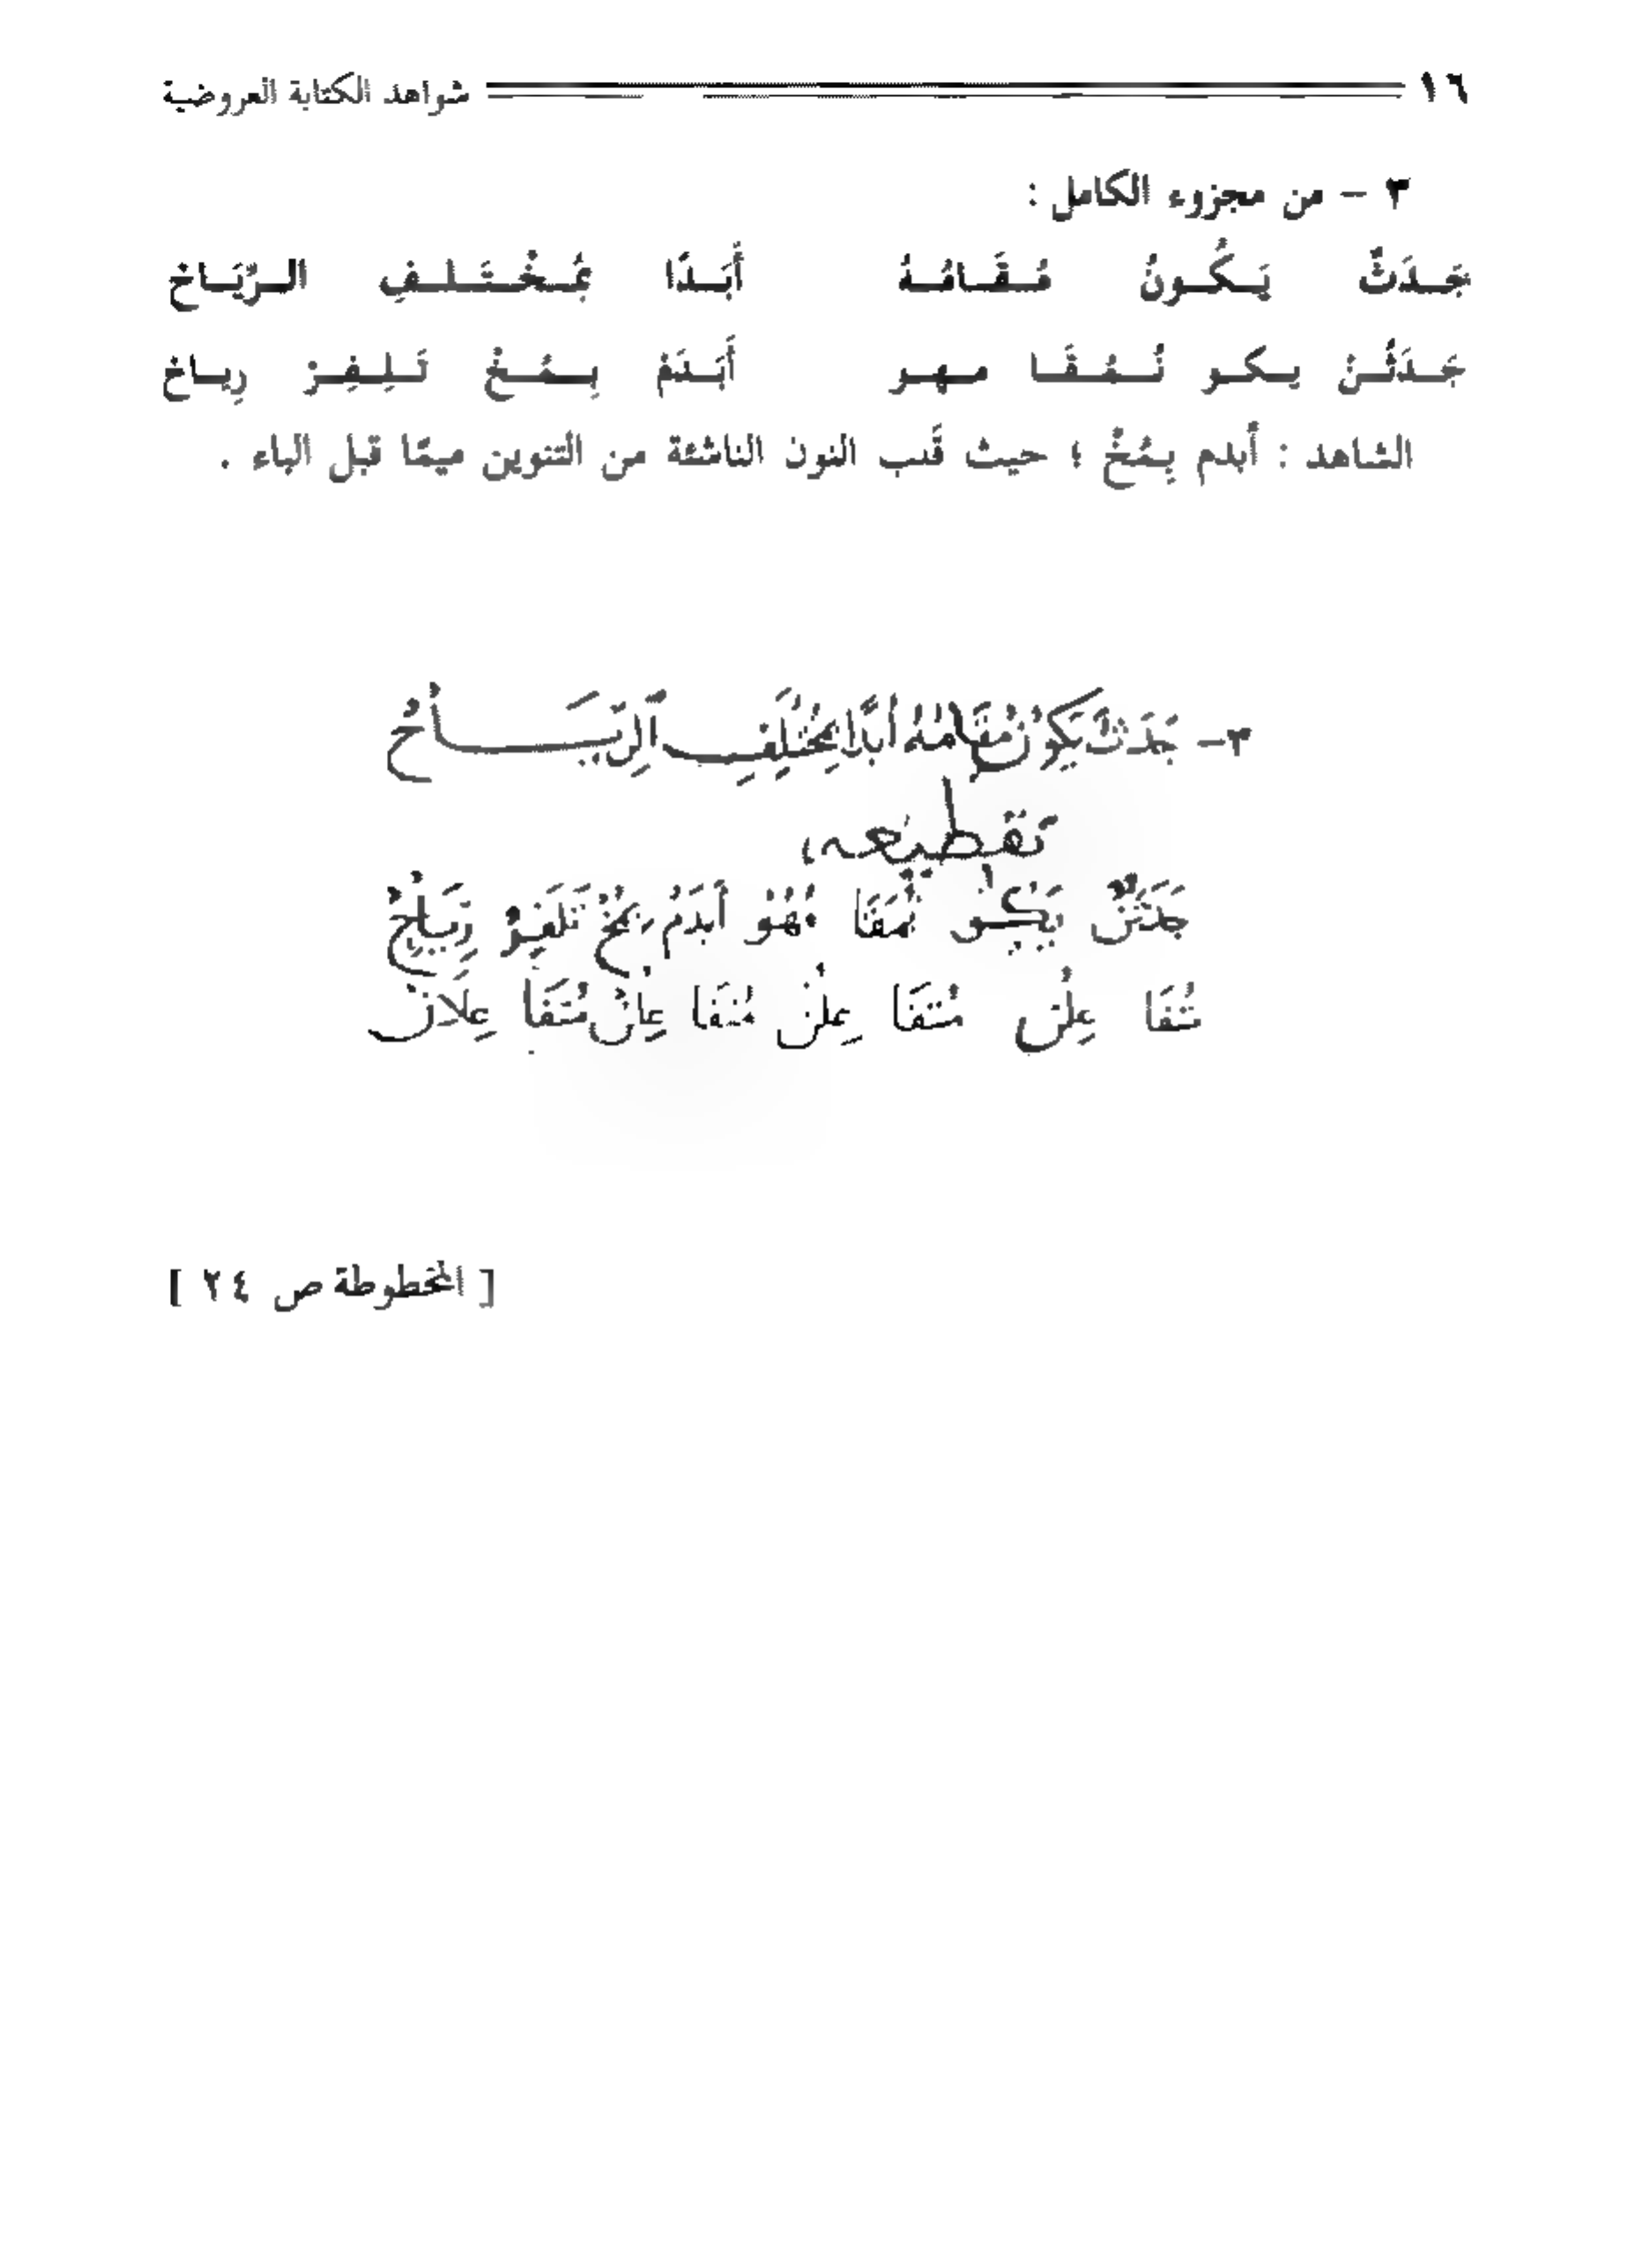 ١٦ شواهد الكتابة العروضية
٣ - من مجزوء الكامل :
جَـدَثٌ يَـكُـونُ مُـقَـامُـهُ أَبَـدًا بِمُخْـتَـلـفِ الـرِّيَـاخ
جَـدَثُـنْ يـكـو نُـمُـقَـا مـهـو أَبَـدَمْ بِـمُـخْ تَـلِـفِـرْ رِيـاخ
الشاهد : أبدم بِمُخْ ؛ حيث قَلب النون الناشئة من التنوين ميمًا قبل الباء .
٣- جَدَثٌ يَكُونُ مُقَامُهُ أَبَدًا بِمُخْتَلِفِ الرِّيَـــاحْ
تقطيعه،
جَدَثُنْ يَكُو نُمُقَا مُهُوْ أَبَدَمْ بِمُخْ تَلِفِرْ رِيَاحْ
مُتَفَا عِلُنْ مُتَفَا عِلُنْ مُتَفَا عِلُنْ مُتَفَا عِلَانْ
[ المخطوطة ص ٢٤ ]